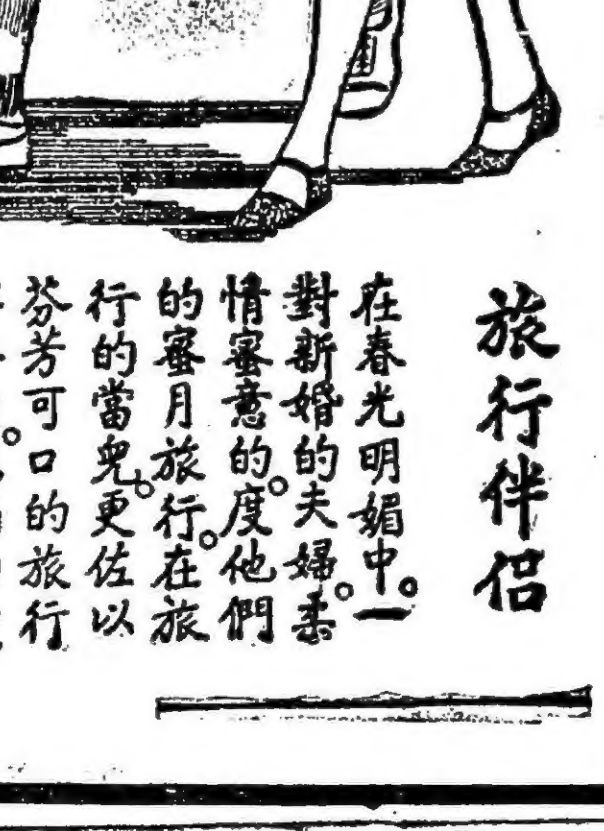 旅行伴侣
在春光明媚中。一
對新婚的夫婦。柔
情蜜意的。度他們
的蜜月旅行。在旅
行的當兒。更佐以
芬芳可口的旅行